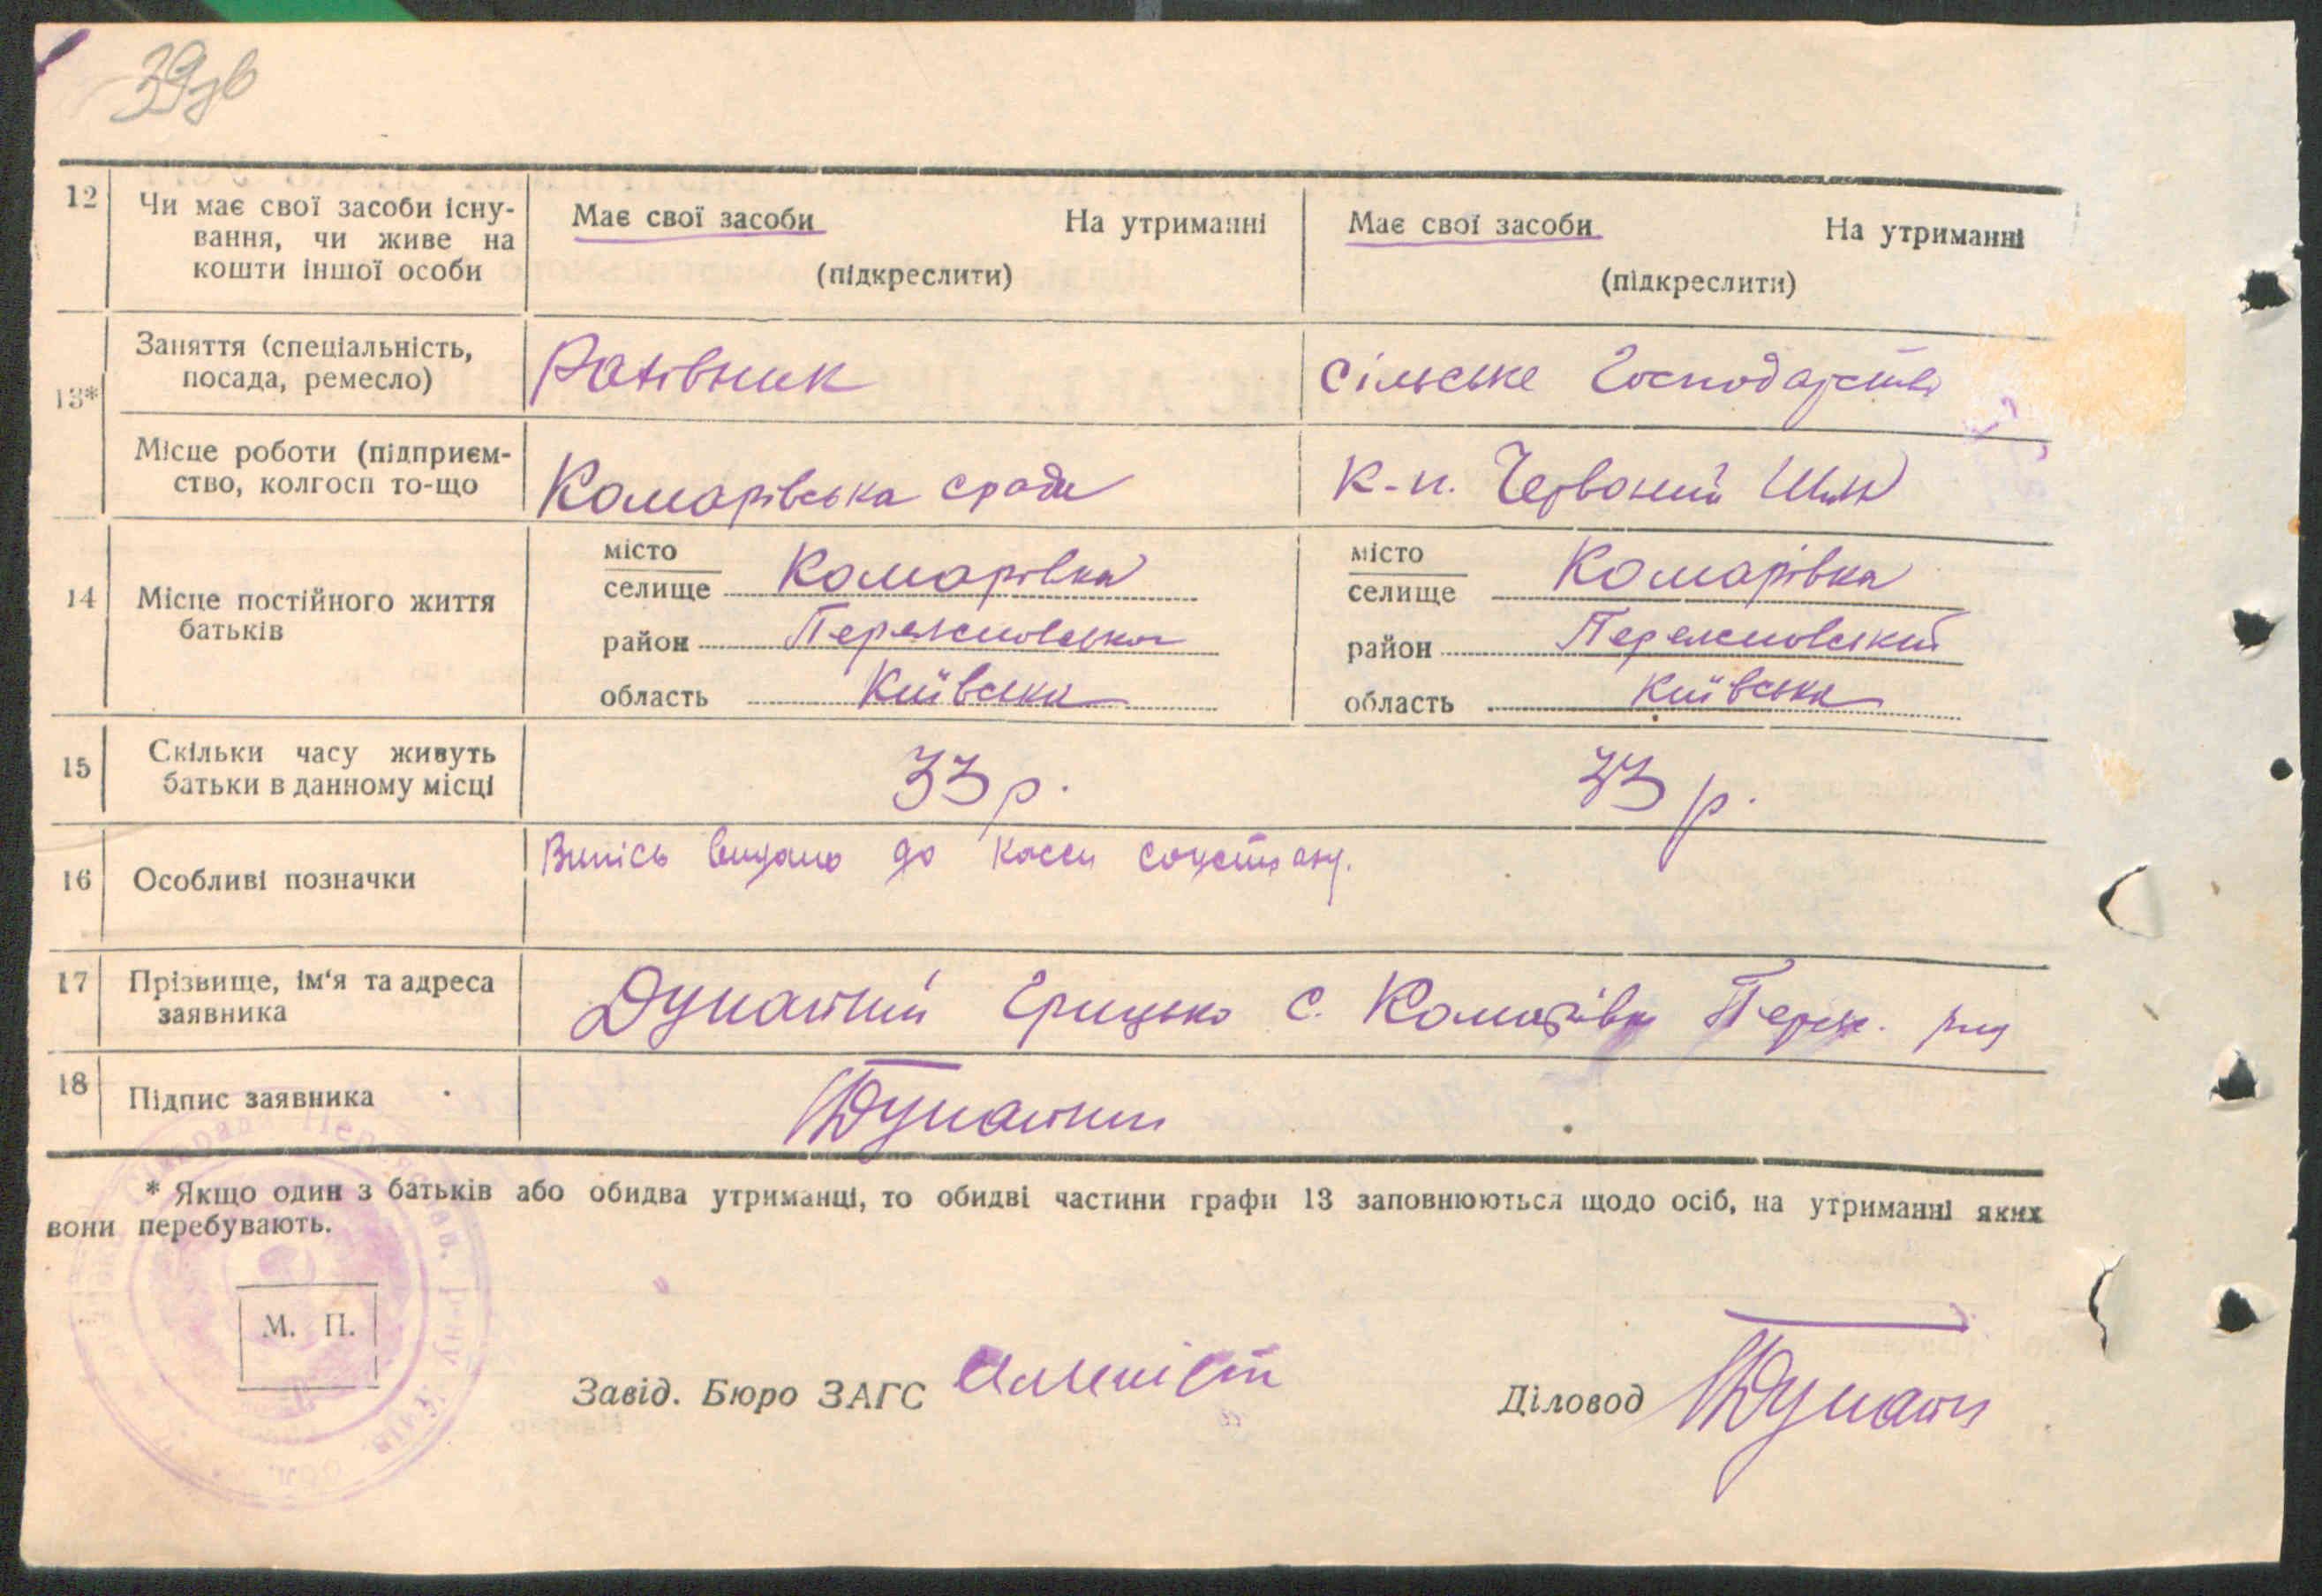 39зв
12 Чи має свої засоби існу-
вання, чи живе на
кошти іншої особи
Має свої засоби На утриманні
(підкреслити)
Має свої засоби На утриманні
(підкреслити)
13*
Заняття (спеціальність,
посада, ремесло)
Сільське Господарство
Місце роботи (підприєм-
ство, колгосп то-що
Комарівська срада
к-п. Червоний Шлях
14 Місце постійного життя
батьків
місто
селище Комарівка
район
область Київська
місто
селище Комарівка
район
область Київська
15 Скільки часу живуть
батьки в данному місці
33 р.
33 р.
16 Особливі позначки
Випісь видано до касси соцстраху.
17 Прізвище, ім'я та адреса
заявника
Грицько с. Комарівка
18 Підпис заявника
* Якщо один з батьків або обидва утриманці, то обидві частини графи 13 заповнюються щодо осіб, на утриманні яких
вони перебувають.
М. П.
Завід. Бюро ЗАГС
Діловод